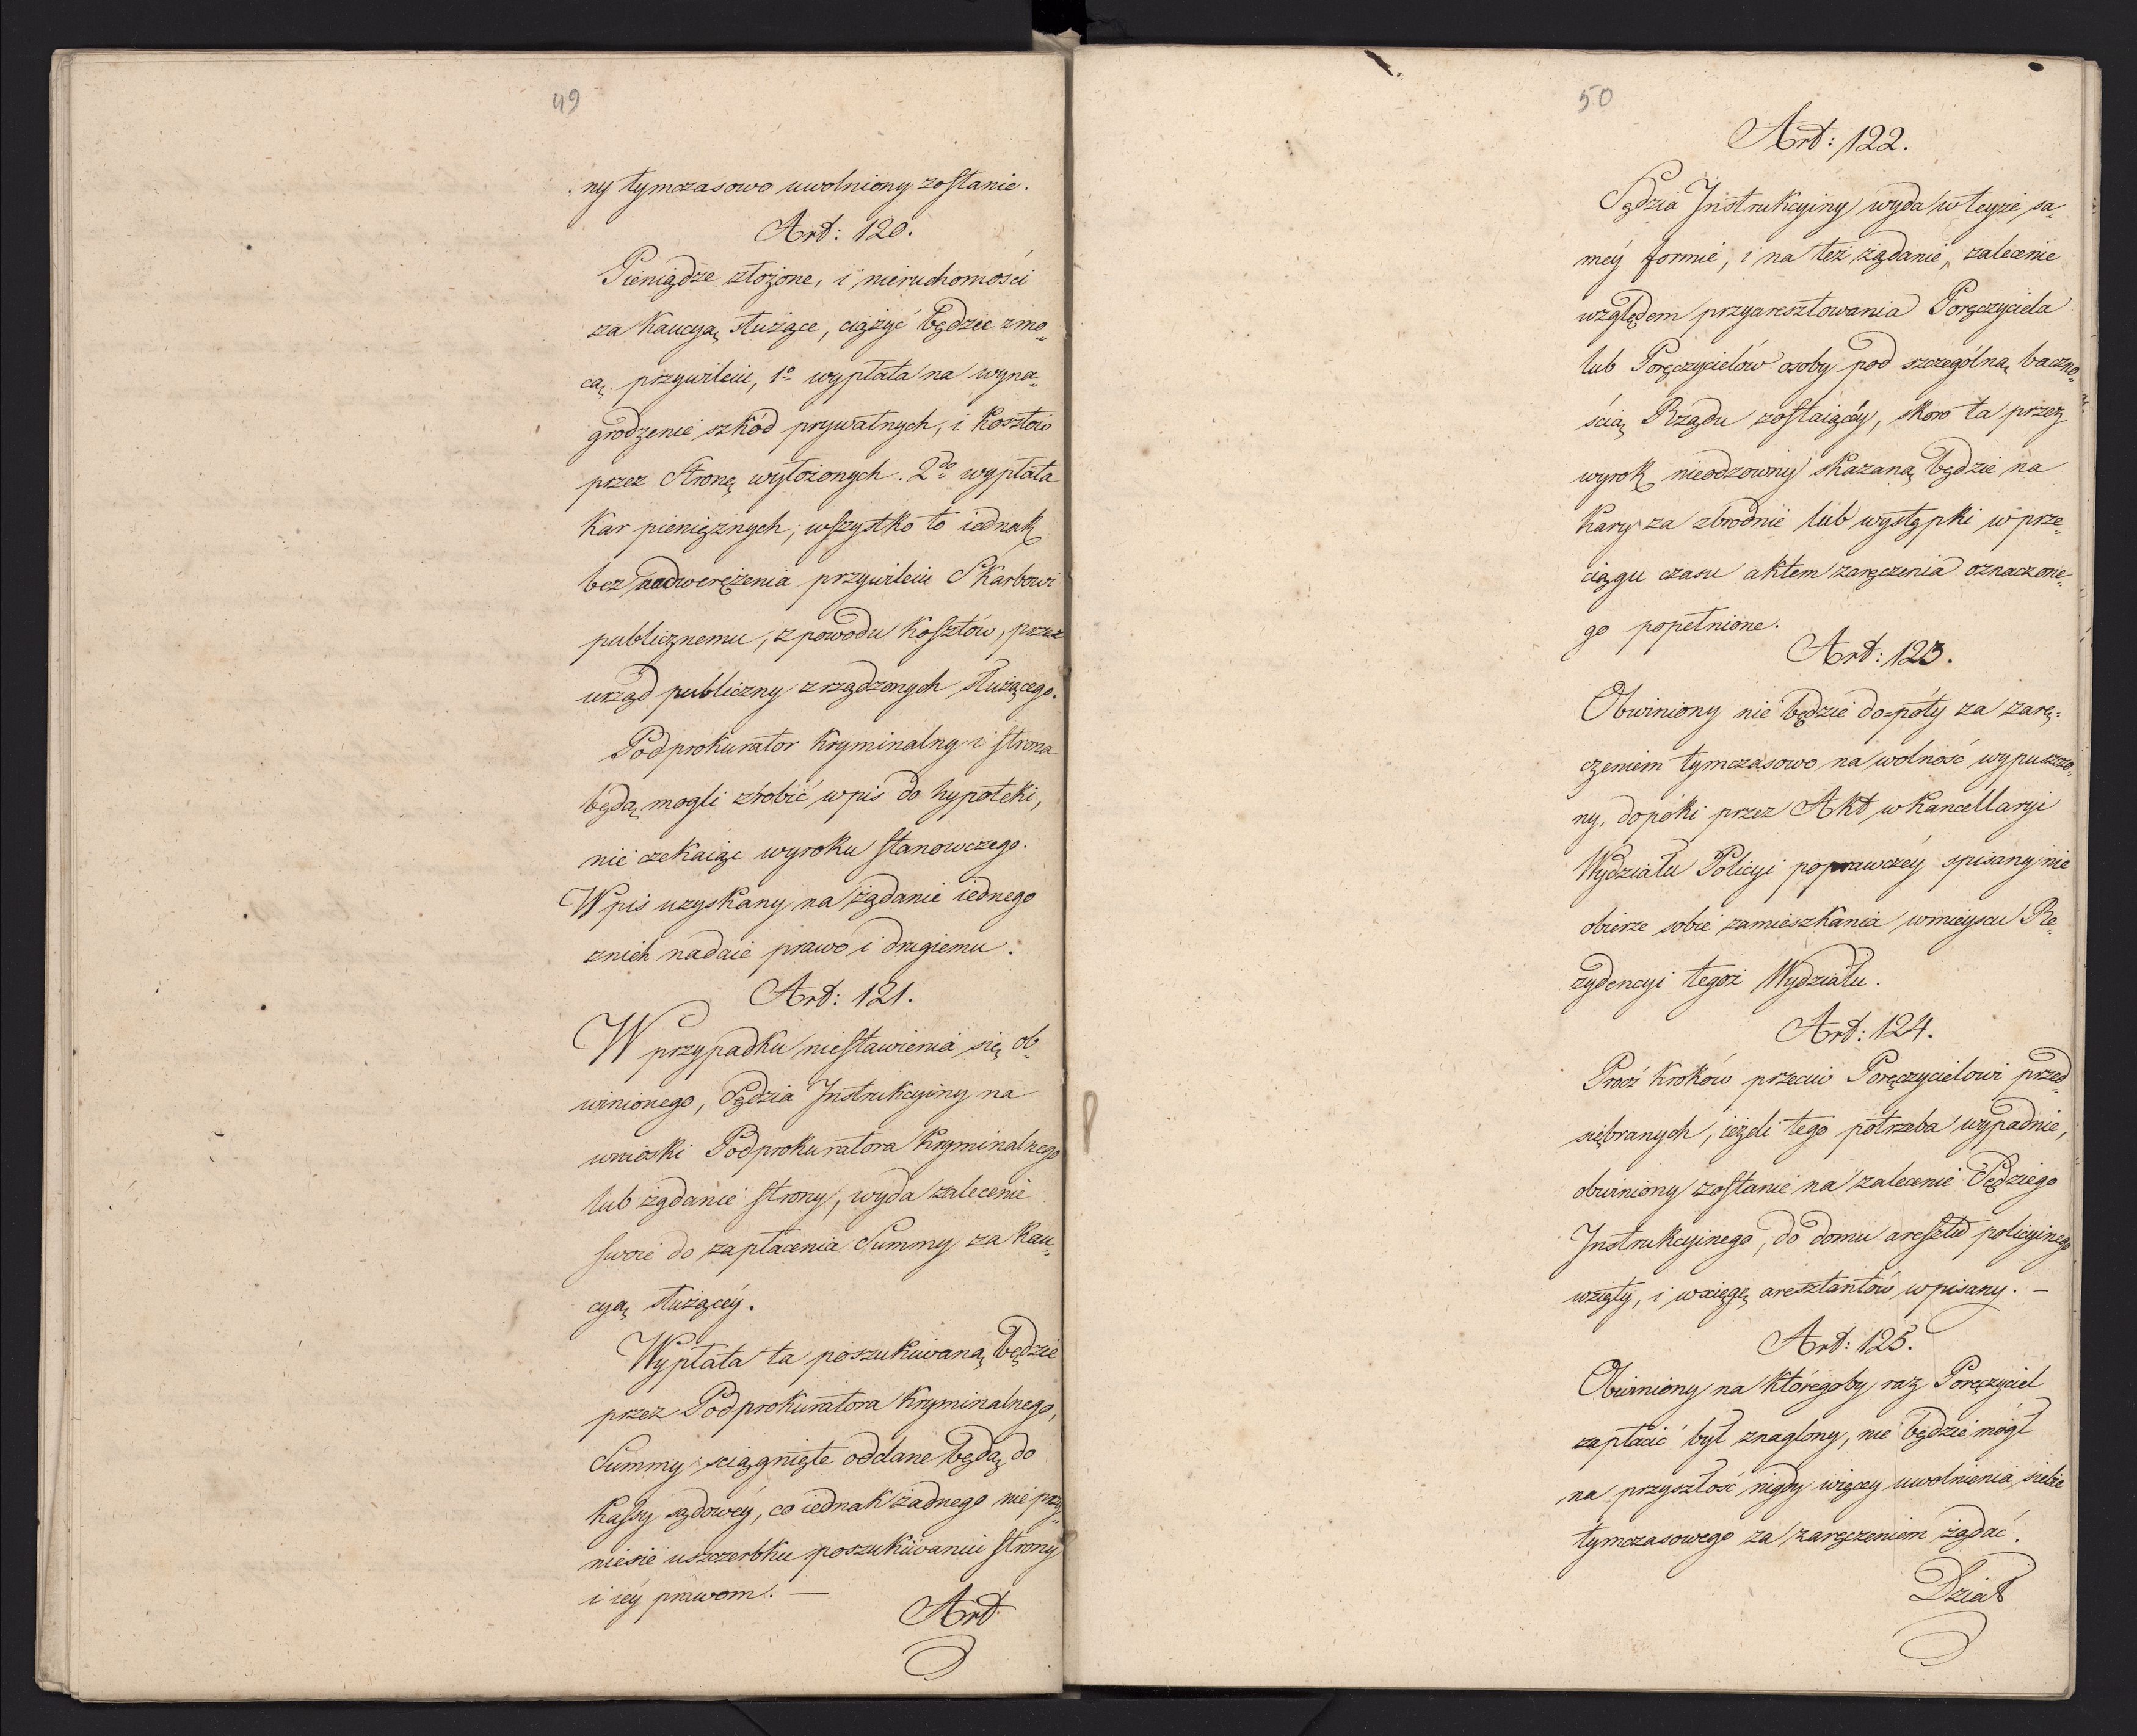 49
ny tymczasowo uwolniony zostanie.
Art: 120.
Pieniądze złożone, i nieruchomości
za kaucyą służące, ciążyć będzie z mo„
cą przywileiu, 1o wypłata na wyna„
grodzenie szkód prywatnych, i kosztów
przez stronę wyłożonych. 2do wypłata
kar pieniężnych, wszystko to iednak
bez nadwerężenia przywileiu Skarbowi
publicznemu, z powodu kosztów, przez
urząd publiczny zrządzonych, służącego.
Podprokurator kryminalny i strona
będą mogli zrobić wpis do hypoteki,
nie czekaiąc wyroku stanowczego.
Wpis uzyskany na żądanie iednego
z nich nadaie prawo i drugiemu.
Art: 121.
W przypadku niestawienia się ob„
winionego, Sędzia Instrukcyiny na
wnioski Podprokuratora Kryminalnego
lub żądanie strony, wyda zalecenie
swoie do zapłacenia Summy za kau„
cyą służącéy.
Wypłata ta poszukiwaną będzie
przez Podprokuratora Kryminalnego,
Summy sciągnięte oddane będą do
kassy sądowéy, co iednak żadnego nie przy„
niesie uszczerbku poszukiwaniu strony
i iéy prawom. —
Art
50
Art: 122.
Sędzia Instrukcyiny wyda w teyże sa„
méy formie, i na też żądanie, zalecenie
względem przyaresztowania Poręczyciela
lub Poręczycielów osoby pod szczególną baczno„
ścią Rządu zostaiącéy, skoro ta przez
wyrok nieodzowny skazaną będzie na
kary za zbrodnie lub występki w prze„
ciągu czasu aktem zaręczenia oznaczone„
go popełnione.
Art: 123.
Obwiniony nie będzie do=póty za zarę„
czeniem tymczasowo na wolność wypuszczo„
ny, dopóki przez Akt w Kancellaryi
Wydziału Policyi poprawczéy spisany nie
obierze sobie zamieszkania w mieyscu Re„
zydencyi tegoż Wydziału.
Art: 124.
Prócz kroków przeciw Poręczycielowi przed„
siębranych, ieżeli tego potrzeba wypadnie,
obwiniony zostanie na zalecenie Sędziego
Instrukcyinego, do domu aresztu policyinego
wzięty, i w xięgę aresztantów wpisany. —
Art: 125.
Obwiniony na któregoby raz Poręczyciel
zapłacić był znaglony, nie będzie mógł
na przyszłość nigdy więcey uwolnienia siebie
tymczasowego za zaręczeniem żądać.
Dział